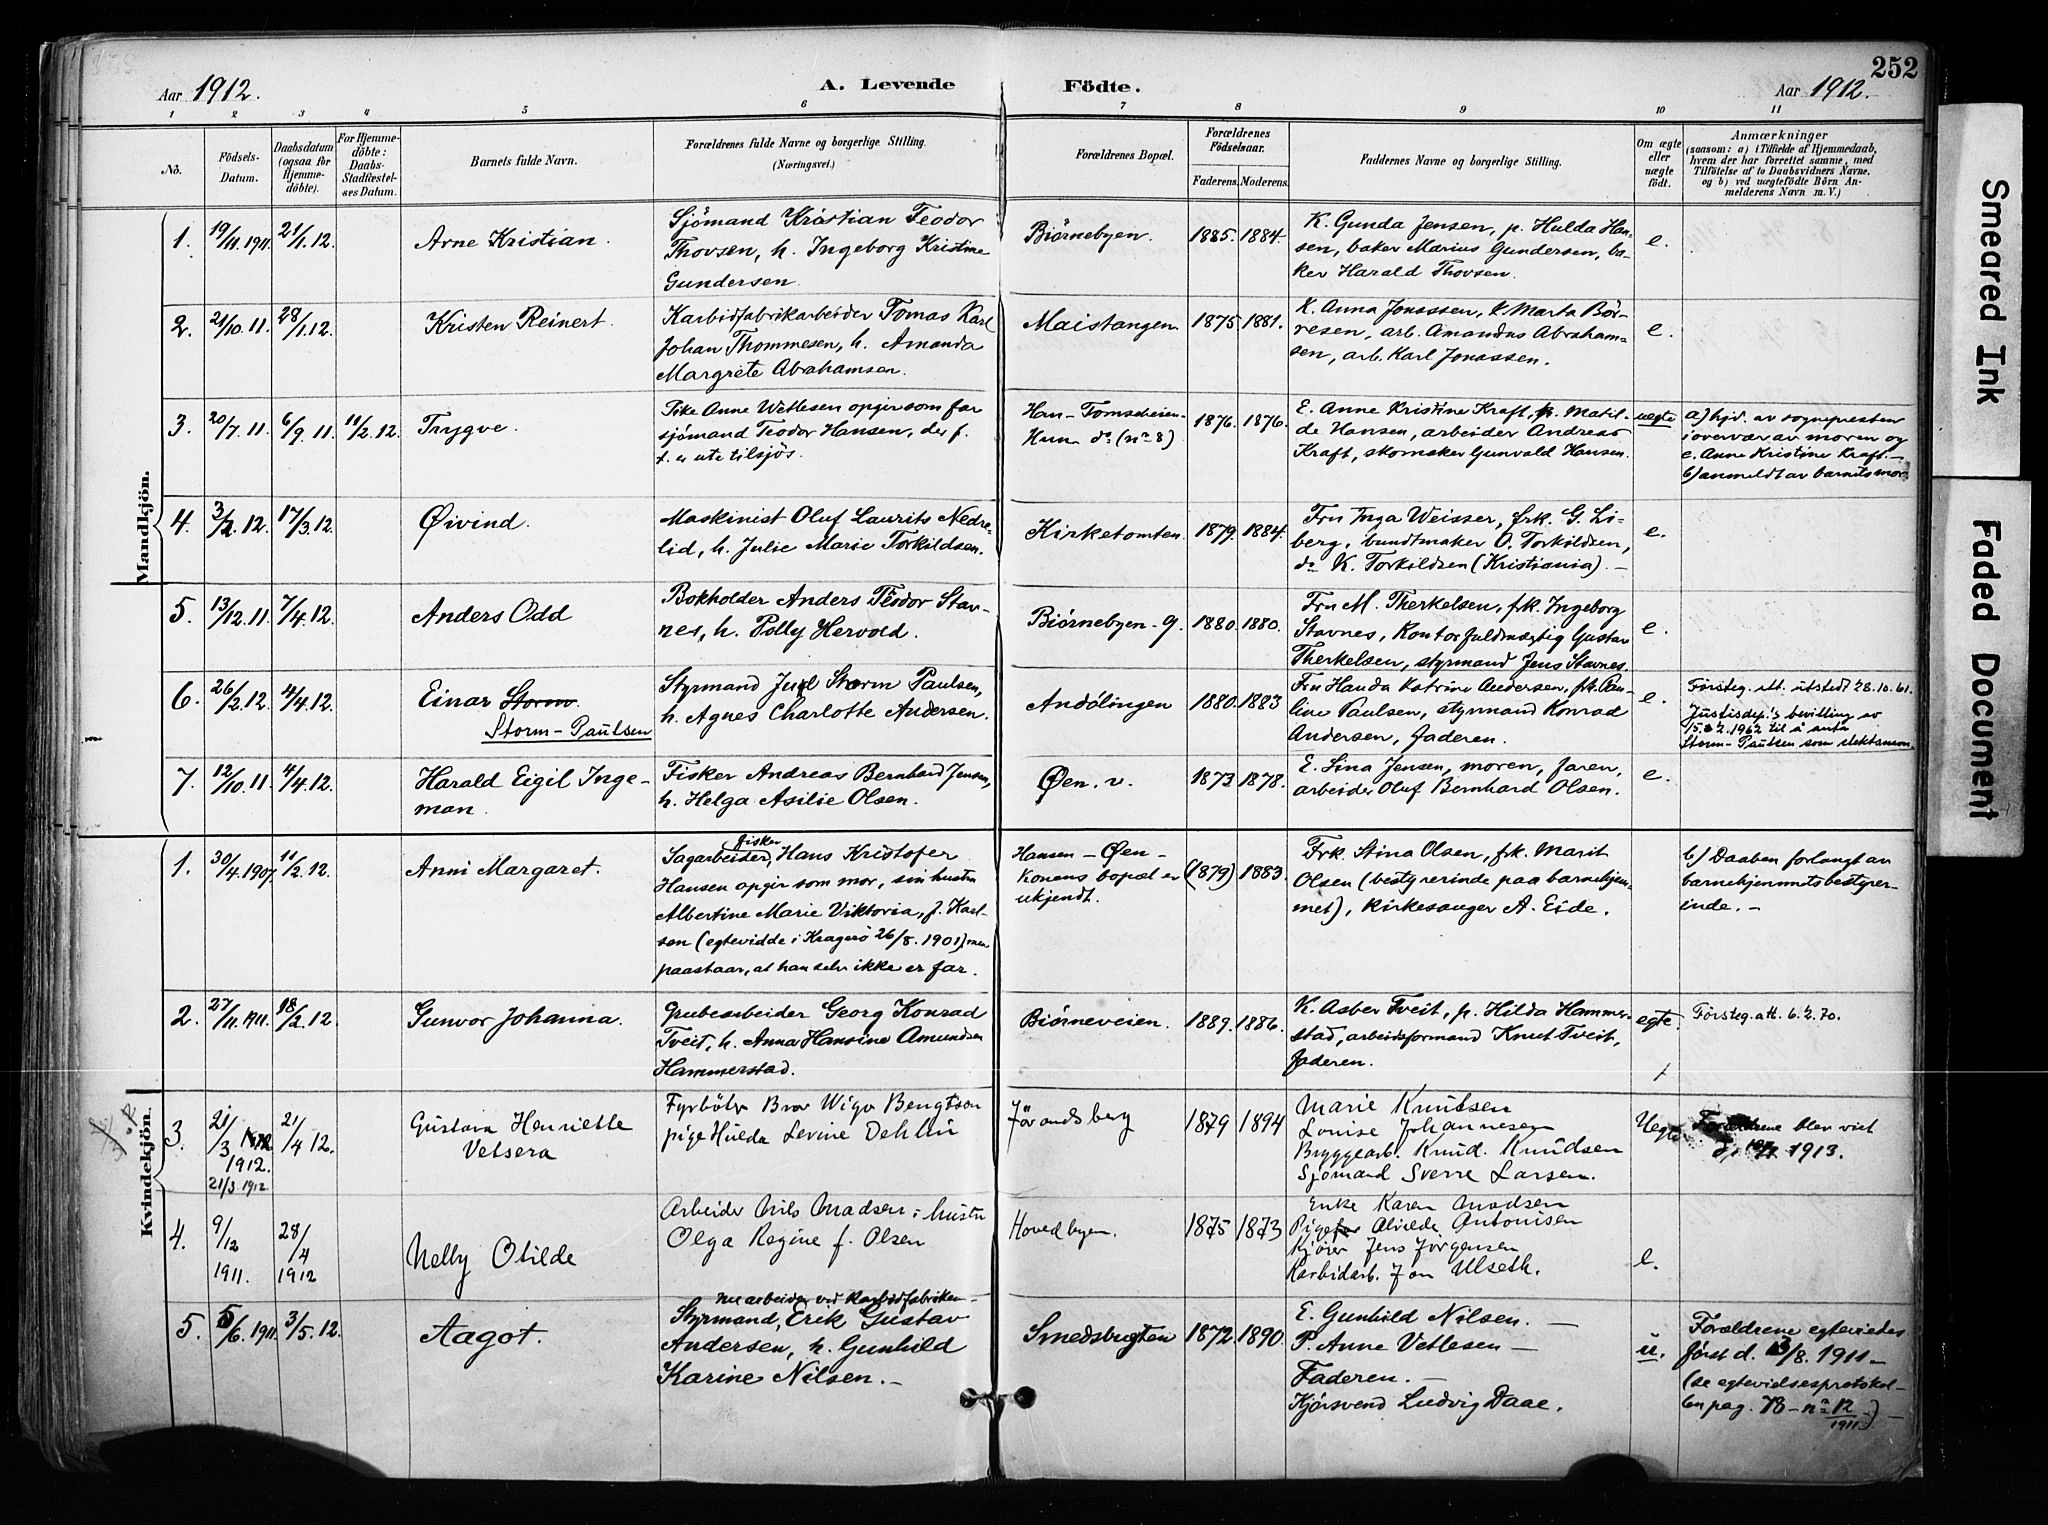 252
Aar 1912.
A. Levende Födte.
Aar 1912.
1 2 3 4 5 6 7 8 9 10 11
No.
Födsels-
Datum.
Daabsdatum
(ogsaa for
Hjemme-
döbte).
For Hjemme-
döbte:
Daabs-
Stadfæstel-
ses Datum.
Barnets fulde Navn.
Forældrenes fulde Navne og borgerlige Stilling.
(Næringsvei.)
Forældrenes Bopæl.
Forældrenes
Födselsaar.
Faderens. Moderens.
Faddernes Navne og borgerlige Stilling.
Om ægte
eller
uægte
født.
Anmærkninger
(saasom: a) i Tilfælde af Hjemmedaab,
hvem der har forrettet samme, med
Tilföielse af to Daabsvidners Navne.
og b) ved uægtefödte Börn An-
melderens Navn m. V.)
Mandkjön.
1.
19/11.1911.
21/1.12.
Arne Kristian.
Sjömand Kristian Teodor
Thovsen, h. Ingeborg Kristine
Gundersen.
Biörnebyen.
1885. 1884.
K. Gunda Jensen, p. Hulda Han-
sen, baker Marius Gundersen, ba-
ker Harald Thovsen.
e.
2.
21/10.11.
28/1.12.
Kristen Reinert.
Karbidfabrikarbeider Tomas Karl
Johan Thommesen, h. Amanda
Margrete Abrahamsen.
Maistangen
1875 1881.
K. Anna Jonassen, K. Marta Bör-
resen, arb. Amandus Abraham-
sen, arb. Karl Jonassen.
e.
3.
20/7.11.
6/9.11.
11/2.12.
Trygve.
Pike Anne Wetlesen opgir som far
sjömand Teodor Hansen, der f.
t. er ute tilsjös.
Han - Tomsebeien.
Hun - do (no 8)
1876. 1876.
E. Anne Kristine Kraft, p. Matil-
de Hansen, arbeider Andreas
Kraft, skomaker Gunvald Hansen.
uegte
a) hjd. av sognepresten
i overvær av moren og
e. Anne Kristine Kraft. -
b) anmeldt av barnets mor.
4.
3/2.12.
17/3.12.
Øivind.
Maskinist Oluf Laurits Nedre-
lid, h. Julie Marie Torkildsen.
Kirketomten.
1879. 1884.
Fru Inga Weisser, frk. G. Li-
berg, bundtmaker O. Torkildsen,
do K. Torkildsen (Kristiania). -
e.
5.
13/12.11.
7/4.12.
Anders Odd
Bokholder Anders Teodor Stav-
nes, h. Polly Hervold.
Biörnebyen - 9.
1880. 1880.
Fru M. Therkelsen, frk. Ingeborg
Stavnes, Kontorfuldmægtig Gustav
Therkelsen, styrmand Jens Stavnes.
e.
6.
26/2.12.
4/4.12.
Einar Storm
Storm-Paulsen
Styrmand Juel Storm Paulsen,
h. Agnes Charlotte Andersen.
Andölingen
1880. 1883
Fru Handa Katrine Andersen, frk. Pau-
line Paulsen, styrmand Konrad
Andersen, faderen.
e.
Försteg. att. utstedt 28.10.61.
Justisdep.'s bevilling av
15.2.1962 til å anta
Storm-Paulsen som slektsnavn.
7.
12/10.11.
4/4.12.
Harald Eigil Inge-
man.
Fisker Andreas Bernhard Jensen,
h. Helga Asilie Olsen.
Øen. v.
1873. 1878.
E. Lina Jensen, moren, faren,
arbeider Oluf Bernhard Olsen.
e.
Kvindekjön.
1.
30/4.1907.
11/2.12.
Anni Margaret.
fisker
Sagarbeider, Hans Kristofer
Hansen opgir som mor, sin hustru
Albertine Marie Viktoria, f. Karl-
sen (egteviede i Kragerö 26/8.1901) men
paastaar, at han selv ikke er far.
Hansen - Øen -
Konens bopæl er
ukjendt.
(1879) 1883.
Frk. Stina Olsen, frk. Marit
Olsen (bestyrerinde paa barnehjem-
met), kirkesanger A. Eide.
b) Daaben forlangt av
barnehjemmets bestyrer-
inde. -
2.
27/11.1911.
18/2.12.
Gunvor Johanna.
Grubearbeider Georg Konrad
Tveit, h. Anna Hansine Amundsen
Hammerstad.
Biörneveien.
1889. 1886.
K. Asber Tveit, p. Hilda Hammer-
stad, arbeidsformand Knut Tveit,
faderen.
egte.
Försteg. att. 6.2.70.
3.
21/3
1912.
21/3 1912.
21/4 12.
Gustava Henriette
Vetsera
Fyrböter Bror Wigo Bengtson
pige Hulda Levine Dehlin
Jörandsberg
1879 1894
Marie Knutsen
Louise Johannesen
Bryggearb. Knud. Knudsen
Sjömand Sverre Larsen.
Uegte
Forældrene blev viet
1913.
4.
9/12
1911.
28/4
1912
Nelly Otilde
Arbeider Nils Madsen i hustru
Olga Regine f. Olsen
Hovedbyen.
1875 1873
Enke Karen Madsen
Pige Alvilde Antonisen
Kjører Jens Jörgensen
Karbidarb. Jon Ulseth.
e.
5.
5/6.1911.
3/5.12.
Aagot.
nu arbeider ved Karbidfabriken -
Styrmand, Erik Gustav
Andersen, h. Gunhild
Karine Nilsen. -
Smedsbugten
1872. 1890.
E. Gunhild Nilsen. -
P. Anne Vetlesen -
Faderen. -
Kjörsvend Ludvig Daae.
u.
Forældrene egteviedes
først d. 13/8.1911 -
(se egtevidsesprotokol-
len pag. 78 - no 12/1911) -
Smeared Ink
Faded Document